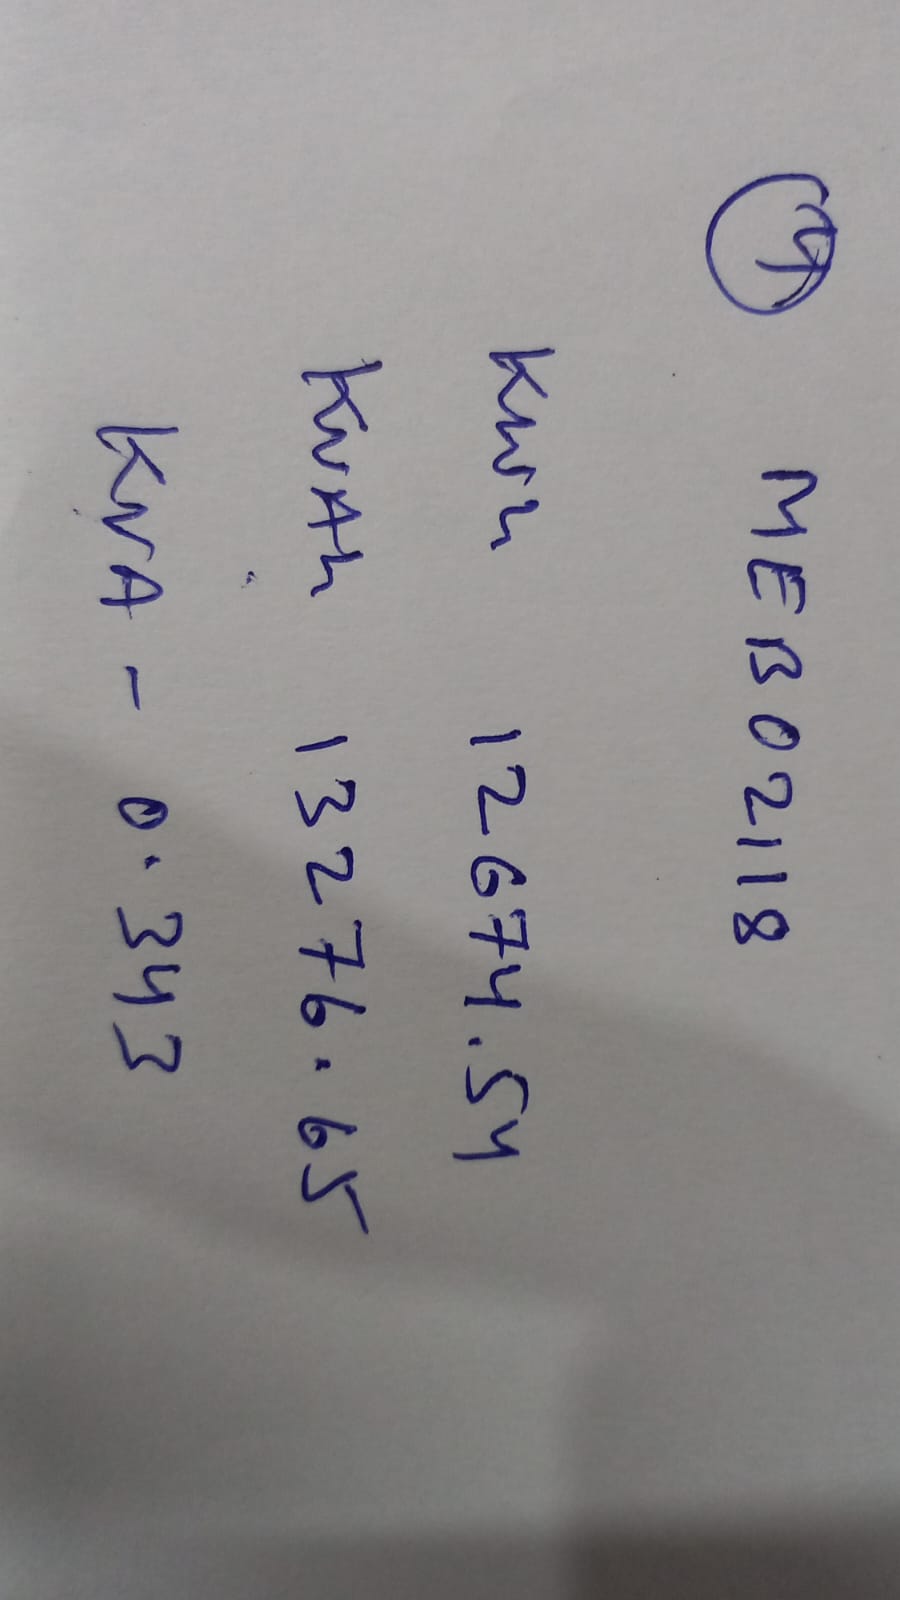 MEB02118
Kwh 12674.54
KVAh 13276.65
KVA - 0.343